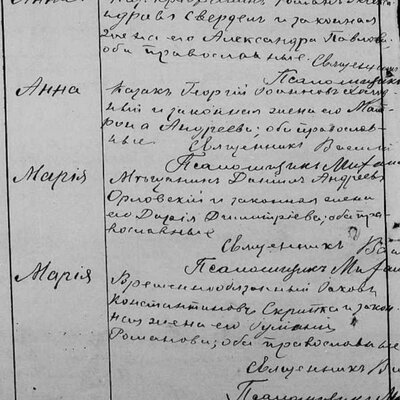 Свердел и законная
жена его Александра Павлова
оба православные
Священник
Псаломщик
Анна
Казак Георгий Іоаннов
и законная жена его Мат
рона Андреева; оба православ-
ные
Священник Василий
Псаломщик Михаил
Марія
Мѣщанин Даниил Андреев
Орловский и законная жена
его Дарія Димитріева; оба пра-
вославные
Священник Ва
Псаломщик Миха
Марія
Временнообязанный Іаков
Константинов Скрипка и закон-
ная жена его
Романова; оба православные
Священник Ва
Псаломщик М